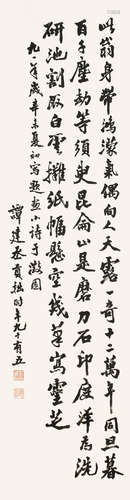 此翁身带鸿濛气偶向人天露一奇十二万年同旦暮
百千尘劫等须臾昆仑山是磨刀石印度洋为洗
研池割取白云摊纸幅悬空几笔写灵芝
九一年岁辛未夏初写题画小诗于澂园
谭建丞贞强时年九十有五